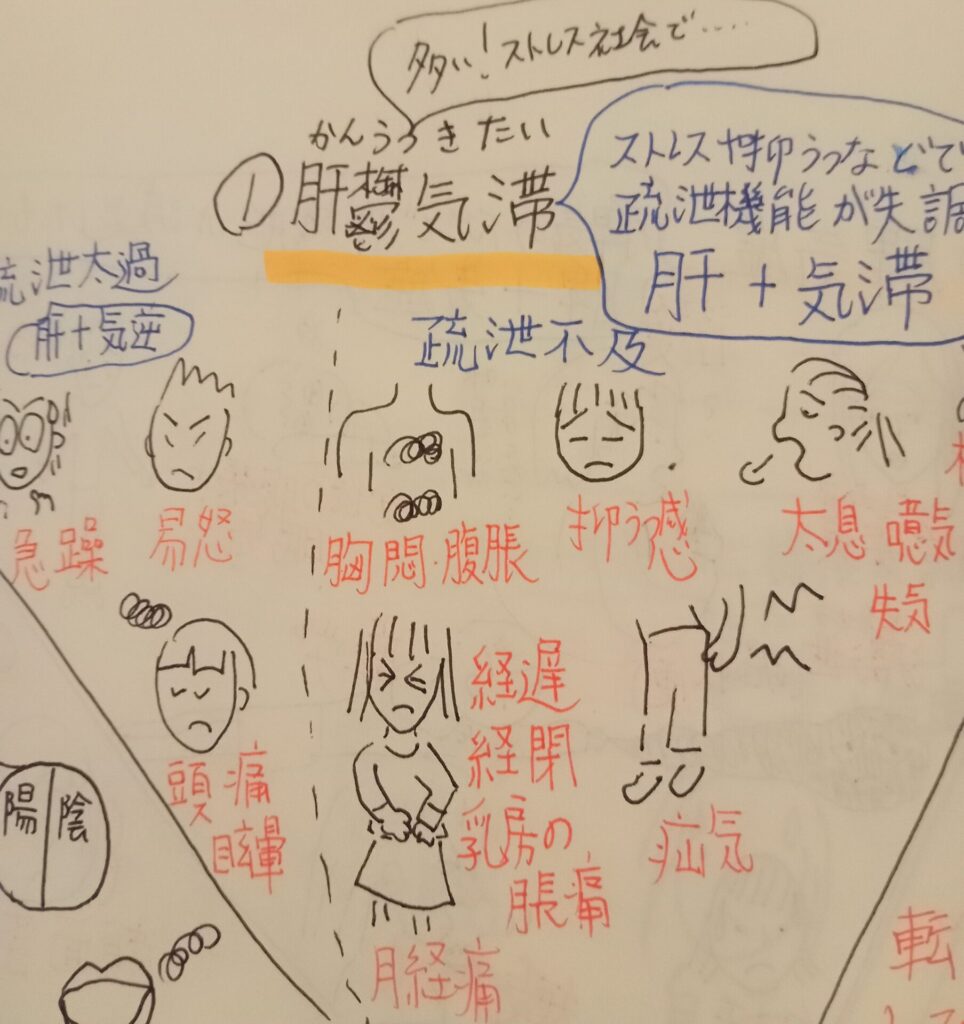 多い！ストレス社会で‥‥‥
かんうつきたい
① 肝鬱気滞
ストレスや抑うつなどで
疏泄機能が失調
肝＋気滞
疏泄太過
肝＋気逆
疏泄不及
急躁
易怒
胸悶・腹脹
抑うつ感
太息・噫気
失気
頭痛
眩暈
経遅
経閉
乳房の
脹痛
月経痛
疝気
陽
陰
転